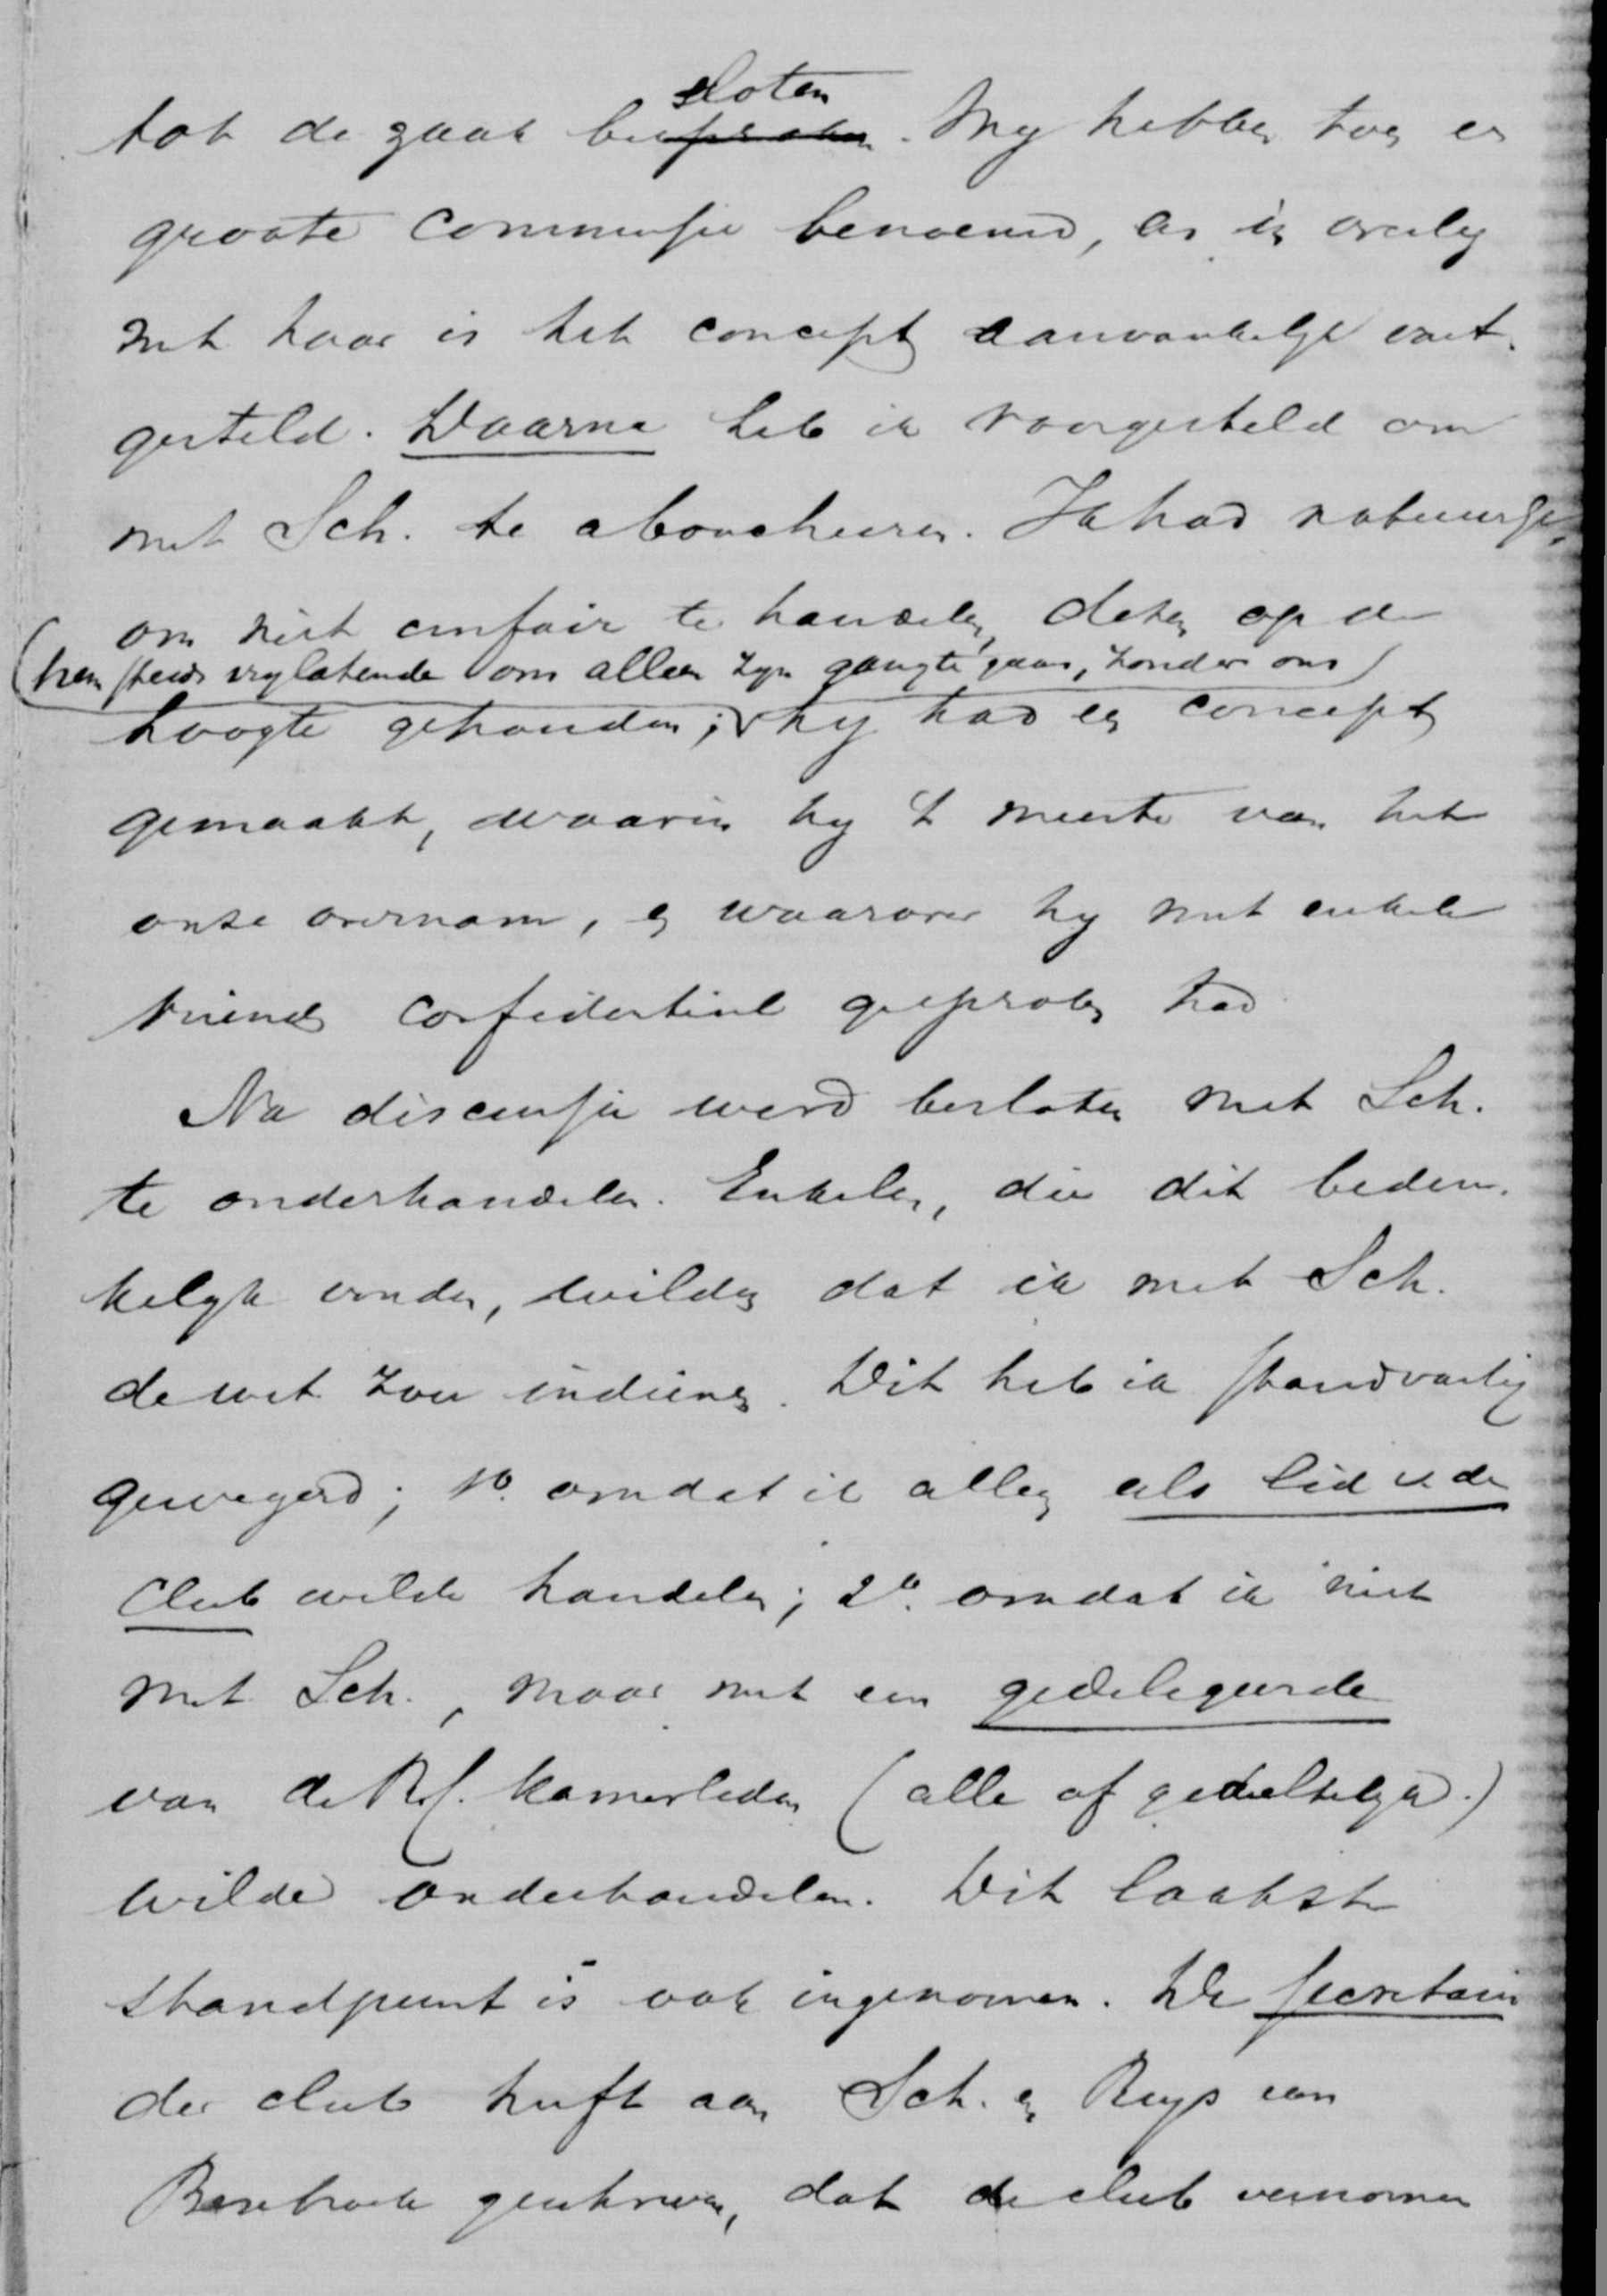 tot de zaak besloten. Wy hebben toen een
groote commissie benoemd, en in overleg
met haar is het concept aanvankelyk vast-
gesteld. Daarna heb ik voorgesteld om
met Sch. te aboucheeren. Ik had natuurlyk,
om niet unfair te handelen, dezen op de
(hem steeds vrylatende om alleen zyn gang te gaan, zonder ons)
hoogte gehouden; hy had een concept
gemaakt, waarin hy 't meeste van het
onze overnam, en waarover hy met enkele
vrienden confidentieel gesproken had
Na discussie werd besloten met Sch.
te onderhandelen. Enkelen, die dit beden-
kelyk vonden, wilden dat ik met Sch.
de wet zou indienen. Dit heb ik standvastig
geweigerd; 1o. omdat ik alleen als lid v. de
club wilde handelen; 2o. omdat ik niet
met Sch., maar met een gedelegeerde
van de R.C. kamerleden (alle of gedeeltelyk.)
wilde onderhandelen. Dit laatste
standpunt is ook ingenomen. De secretaris
der club heeft aan Sch. en Ruys van
Beerenbrouck geschreven, dat de club vernomen